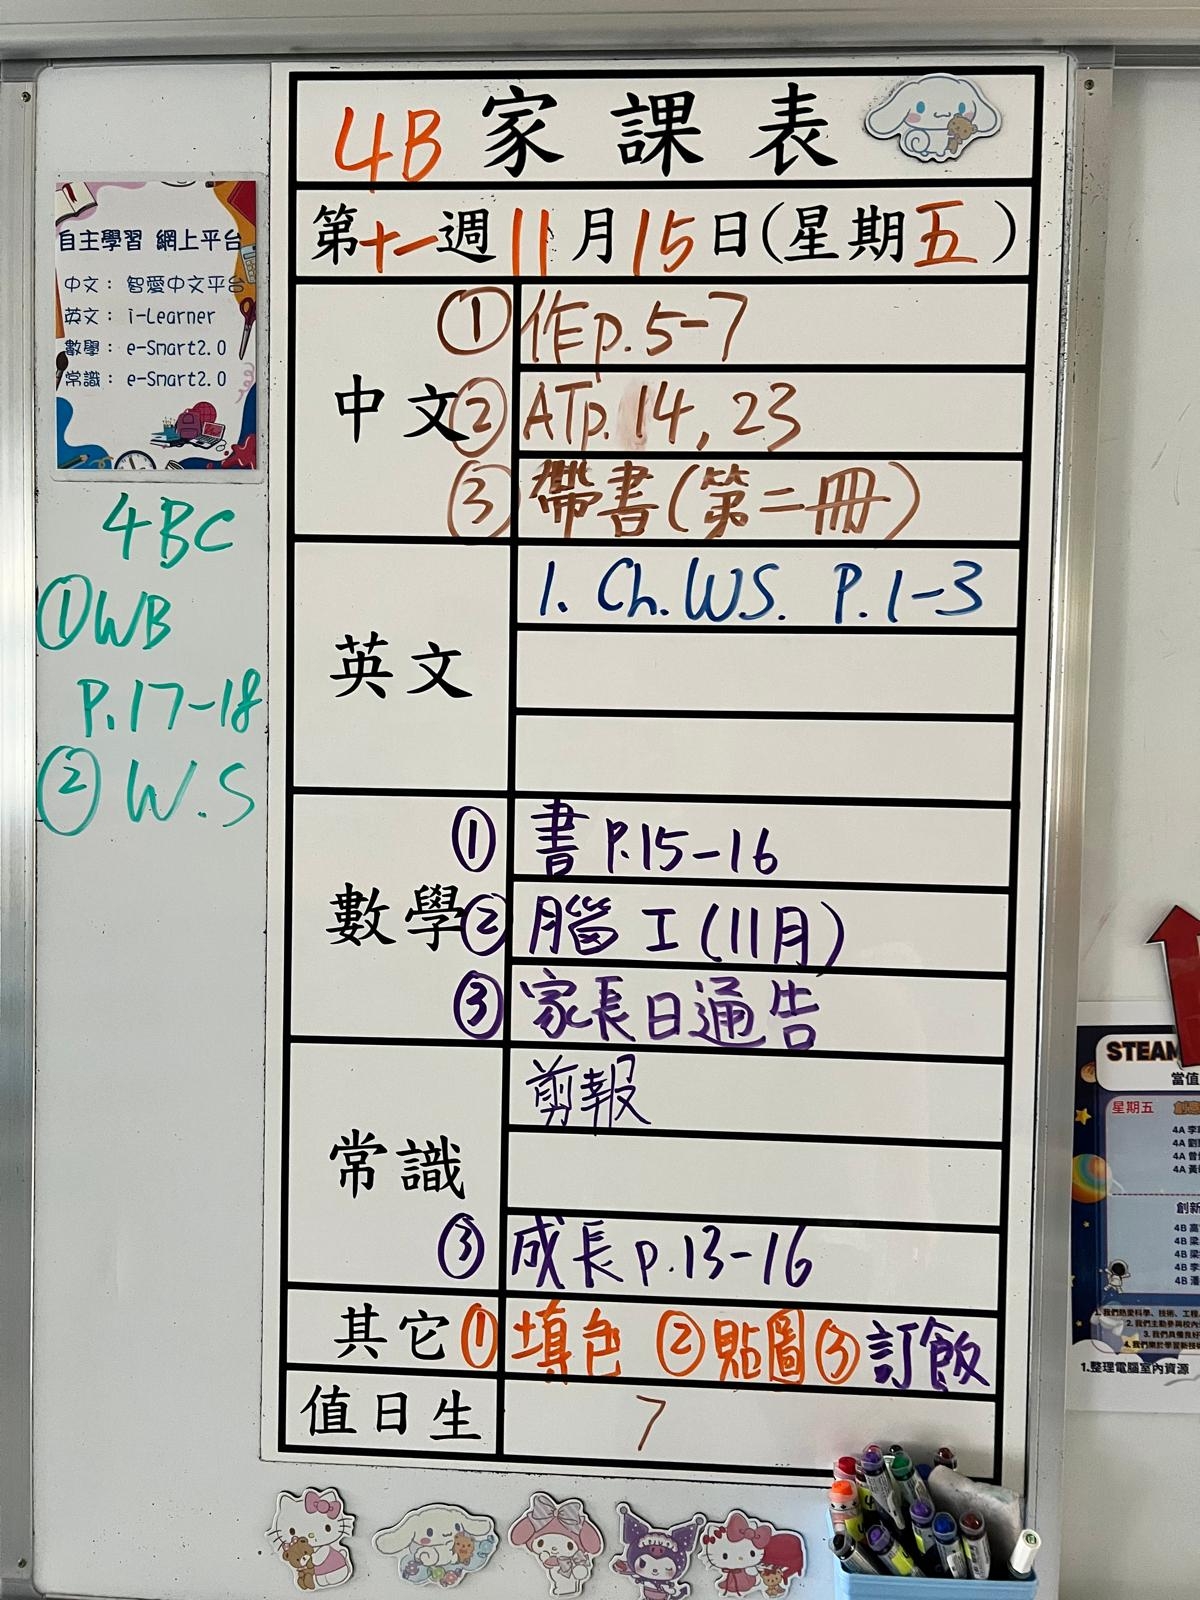 4B 家課表
第十一週 11月15日(星期五)
自主學習 網上平台
中文： 智愛中文平台
英文： i-Learner
數學： e-Smart2.0
常識： e-Smart2.0
4BC
①WB
P.17-18
② W.S
中文
① 作p.5-7
② ATp.14, 23
③ 帶書(第二冊)
英文
1. Ch.W.S. P.1-3
數學
① 書 P.15-16
② 腦工(11月)
③ 家長日通告
常識
剪報
③ 成長 p.13-16
其它 ①填色 ②貼圖 ③訂飯
值日生 7
STEAM
當值
星期五
4A 李
4A 劉
4A 曾
4A 黃
創新
4B 高
4B 梁
4B 梁
4B 李
4B 潘
1.整理電腦室內資源